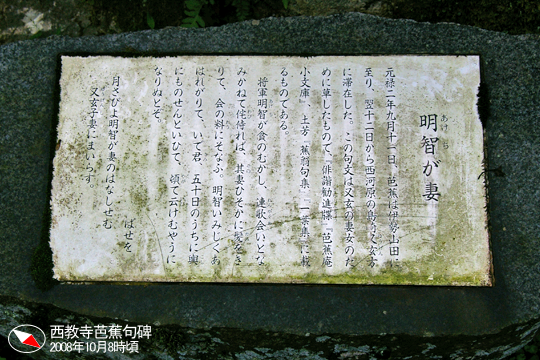 明智が妻
元禄二年九月十一日、芭蕉は伊勢山田に
至り、翌十二日から西河原の島崎又玄方
に滞在した。この句文は又玄の妻女のた
めに草したもので、『俳諧勧進牒』『芭蕉庵
小文庫』、土芳『蕉翁句集』、『一葉集』に載
るものである。
将軍明智が貧のむかし、連歌会いとな
みかねて侘侍れば、其妻ひそかに髪をき
りて、会の料にそなふ。明智いみじくあ
はれがりて、いで君、五十日のうちに輿
にものせんといひて、頓て云けむやうに
なりぬとぞ。
ばせを
月さびよ明智が妻のはなしせむ
又玄子妻にまいらす
西教寺芭蕉句碑
2008年10月8時頃